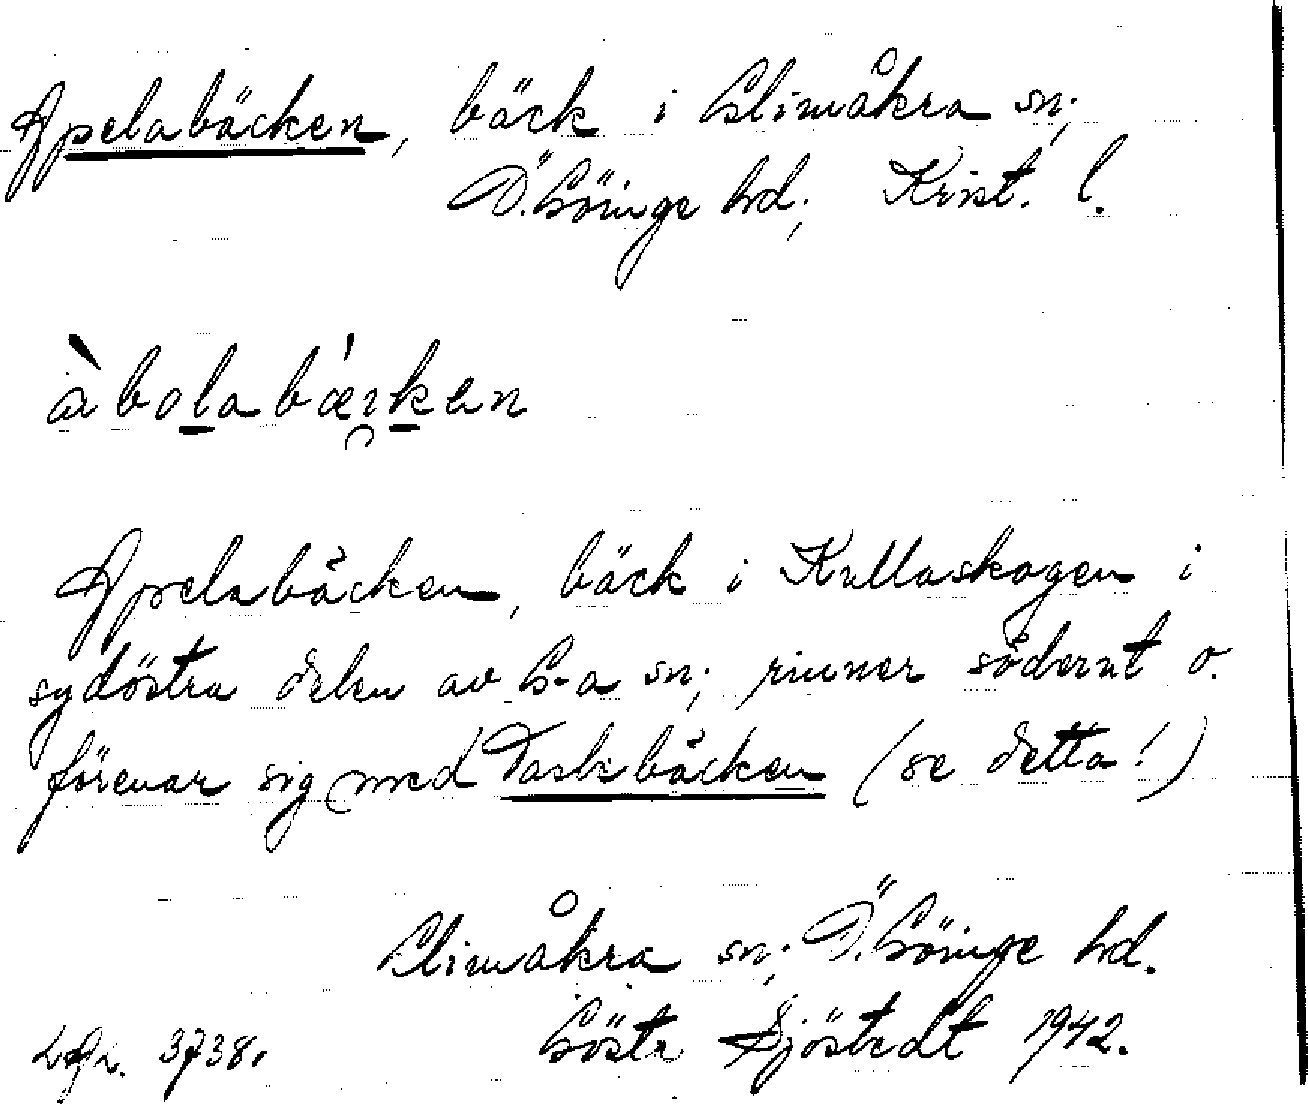 Apelabäcken, bäck i Glimåkra sn;
Ö. Göinge hd; Krist. l.
àbolabæ̀rken
Apelabäcken, bäck i Kullaskogen i
sydöstra delen av G-a sn; rinner söderut o.
förenar sig med Taskbäcken (se detta!)
Glimåkra sn; Ö. Göinge hd.
Gösta Sjöstedt 1942.
LAL. 3738.